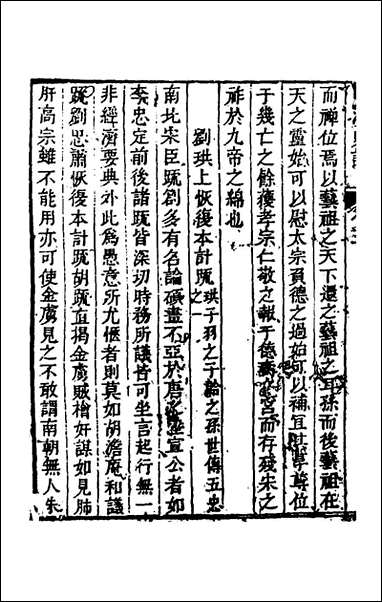 而禪位焉以藝祖之天下還之藝祖之耳孫而後藝祖在
天之靈始可以慰太宗負德之過始可以補且享尊位
于幾亡之餘獲孝宗仁敬之報于德壽之宮而存殘宋之
祚於九帝之綿也
劉珙上恢復本計疏珙子羽之子韐之孫世傳五忠之一
南北宋臣疏劄多有名論碩畫不亞於唐之陸宣公者如
李忠定前後諸疏皆深切時務所議皆可坐言起行無一
非經濟要典外此爲愚意所尤愜者則莫如胡澹庵和議
疏劉思肅恢復本計疏胡疏直揭金虜賊檜奸謀如見肺
肝高宗雖不能用亦可使金虜見之不敢謂南朝無人朱